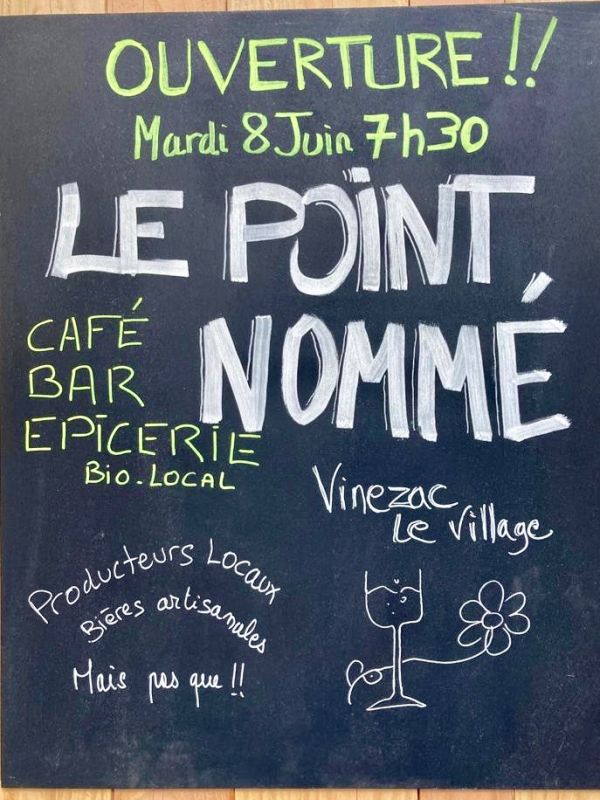 OUVERTURE!!
Mardi 8 Juin 7h30
LE POINT
NOMMÉ
CAFÉ
BAR
EPICERIE
BIO.LOCAL
Vinezac
Le Village
Producteurs Locaux
Bières artisanales
Mais pas que!!